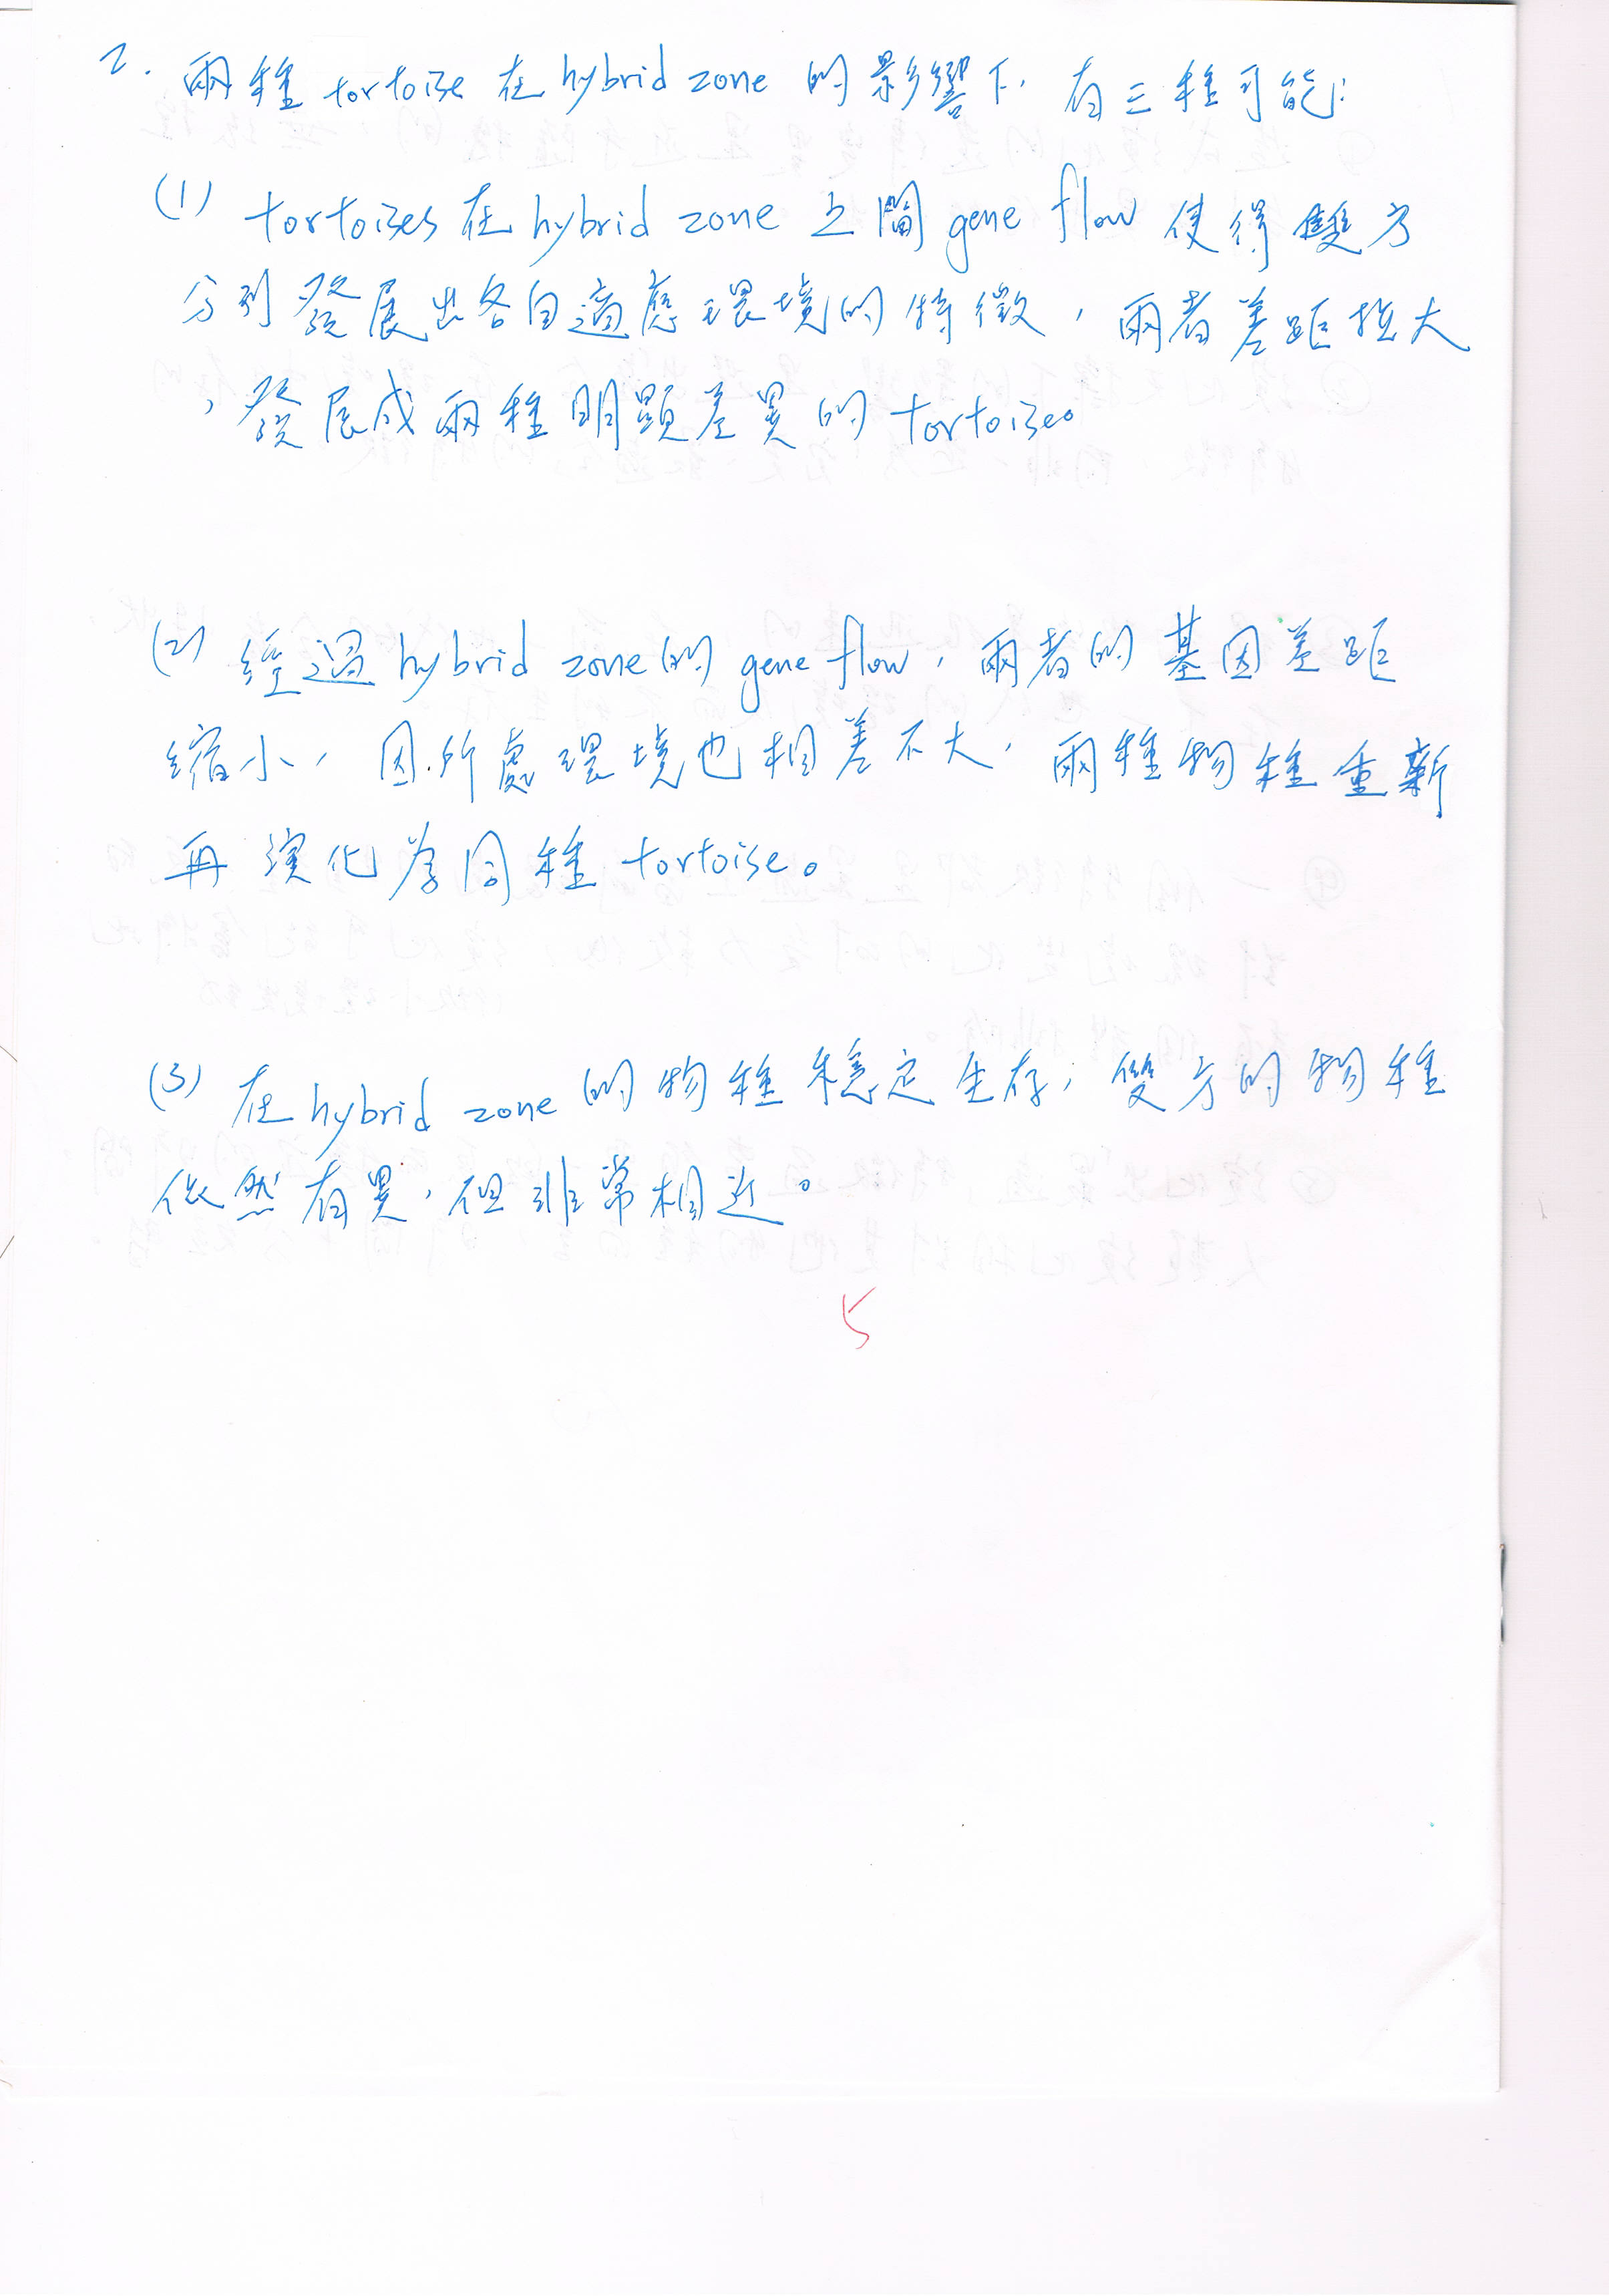 2. 兩種 tortoise 在 hybrid zone 的影響下, 有三種可能:
(1) tortoises 在 hybrid zone 之間 gene flow 使得雙方
分別發展出各自適應環境的特徵, 兩者差距拉大
, 發展成兩種明顯差異的 tortoise。
(2) 經過 hybrid zone 的 gene flow, 兩者的基因差距
縮小, 因所處環境也相差不大, 兩種物種重新
再演化為同種 tortoise。
(3) 在 hybrid zone 的物種穩定生存, 雙方的物種
依然有異, 但非常相近。
5